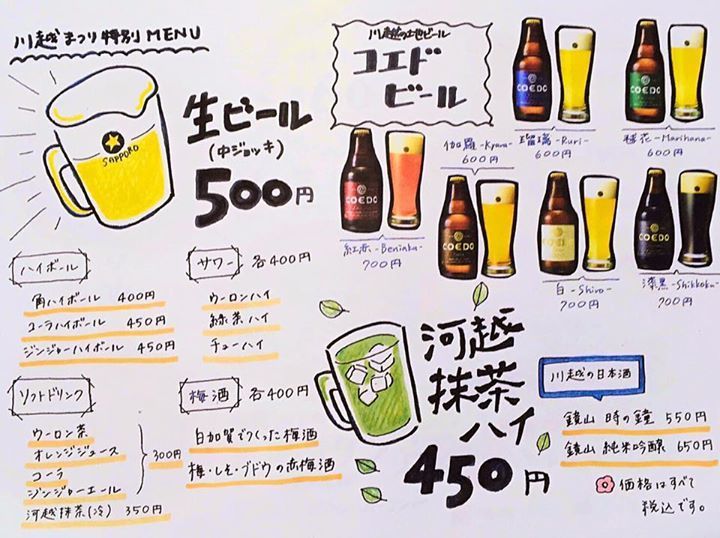 川越まつり特別 MENU
SAPPORO
生ビール
(中ジョッキ)
500円
川越の地ビール
コエド
ビール
COEDO
COEDO
COEDO
COEDO
COEDO
COEDO
紅赤-Beniaka-
700円
伽羅-Kyara-
600円
瑠璃-Ruri-
600円
毬花-Marihana-
600円
白-Shiro-
700円
漆黒-Shikkoku-
700円
ハイボール
角ハイボール 400円
コーラハイボール 450円
ジンジャーハイボール 450円
サワー 各400円
ウーロンハイ
緑茶ハイ
チューハイ
ソフトドリンク
ウーロン茶
オレンジジュース
コーラ
ジンジャーエール
300円
河越抹茶(冷) 350円
梅酒 各400円
白加賀でつくった梅酒
梅・しそ・ブドウの赤梅酒
河越
抹茶
ハイ
450円
川越の日本酒
鏡山 時の鐘 550円
鏡山 純米吟醸 650円
価格はすべて
税込です。